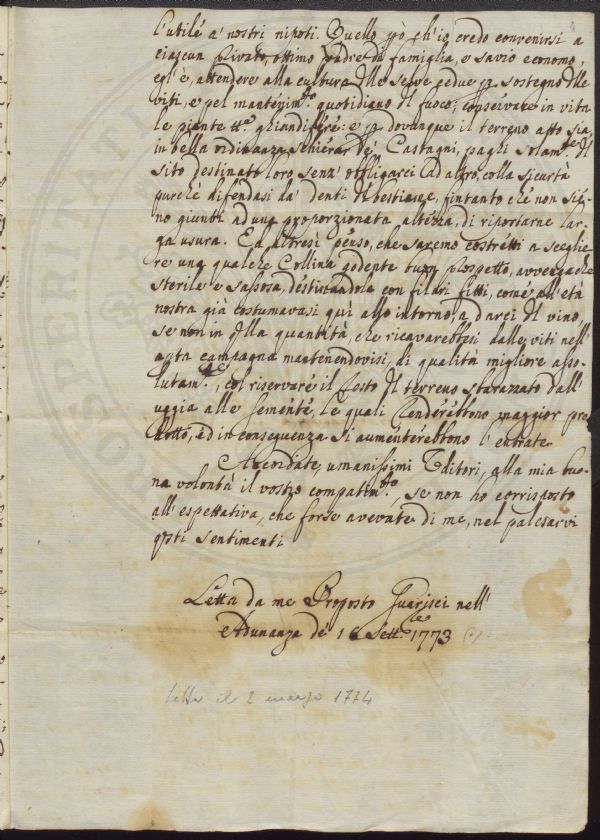 l'utile a' nostri nipoti. Quello però ch'io credo convenirsi a
ciascun privato, ottimo padre di famiglia, e savio economo,
egl'è, attendere alla cultura dlle selve cedue p. sostegno dlle
viti, e pel mantenim.to quotidiano dl fuoco; conservare in vita
le piante tt.e ghiandifere: e p. dovunque il terreno atto sia,
in bella ordinanza schierar de' Castagni, paghi solam.te dl
sito destinato loro, senz'obbligarci ad altro, colla sicurtà
purchè difendasi da' denti dl bestiame, fintanto che non sie-
no giunti ad una proporzionata altezza, di riportarne lar-
ga usura. Ed altresì penso, che saremo costretti a sceglie-
re una qualche Collina godente buon prospetto, avvengachè
sterile e sassosa, destinandola con filari fitti, com'è all'età
nostra già costumavasi quì allo intorno, a darci dl vino
se non in qlla quantità, che ricavarebbesi dalle viti nell'
aperta campagna mantenendovisi, di qualità migliore asso-
lutam.te, col riservare il resto dl terreno sbarazzato dall'
uggia alle semente, le quali renderebbono maggior pro-
dotto, ed in conseguenza si aumenterebbono l'entrate.
Accordate, umanissimi Uditori, alla mia buo-
na volontà il vostro compatim.to, se non ho corrisposto
all'espettativa, che forse avevate di me, nel palesarvi
qsti sentimenti.
Letta da me Proposto Guarisci nell'
Adunanza de' 1 Sett.bre 1773
letta il 2 marzo 1774